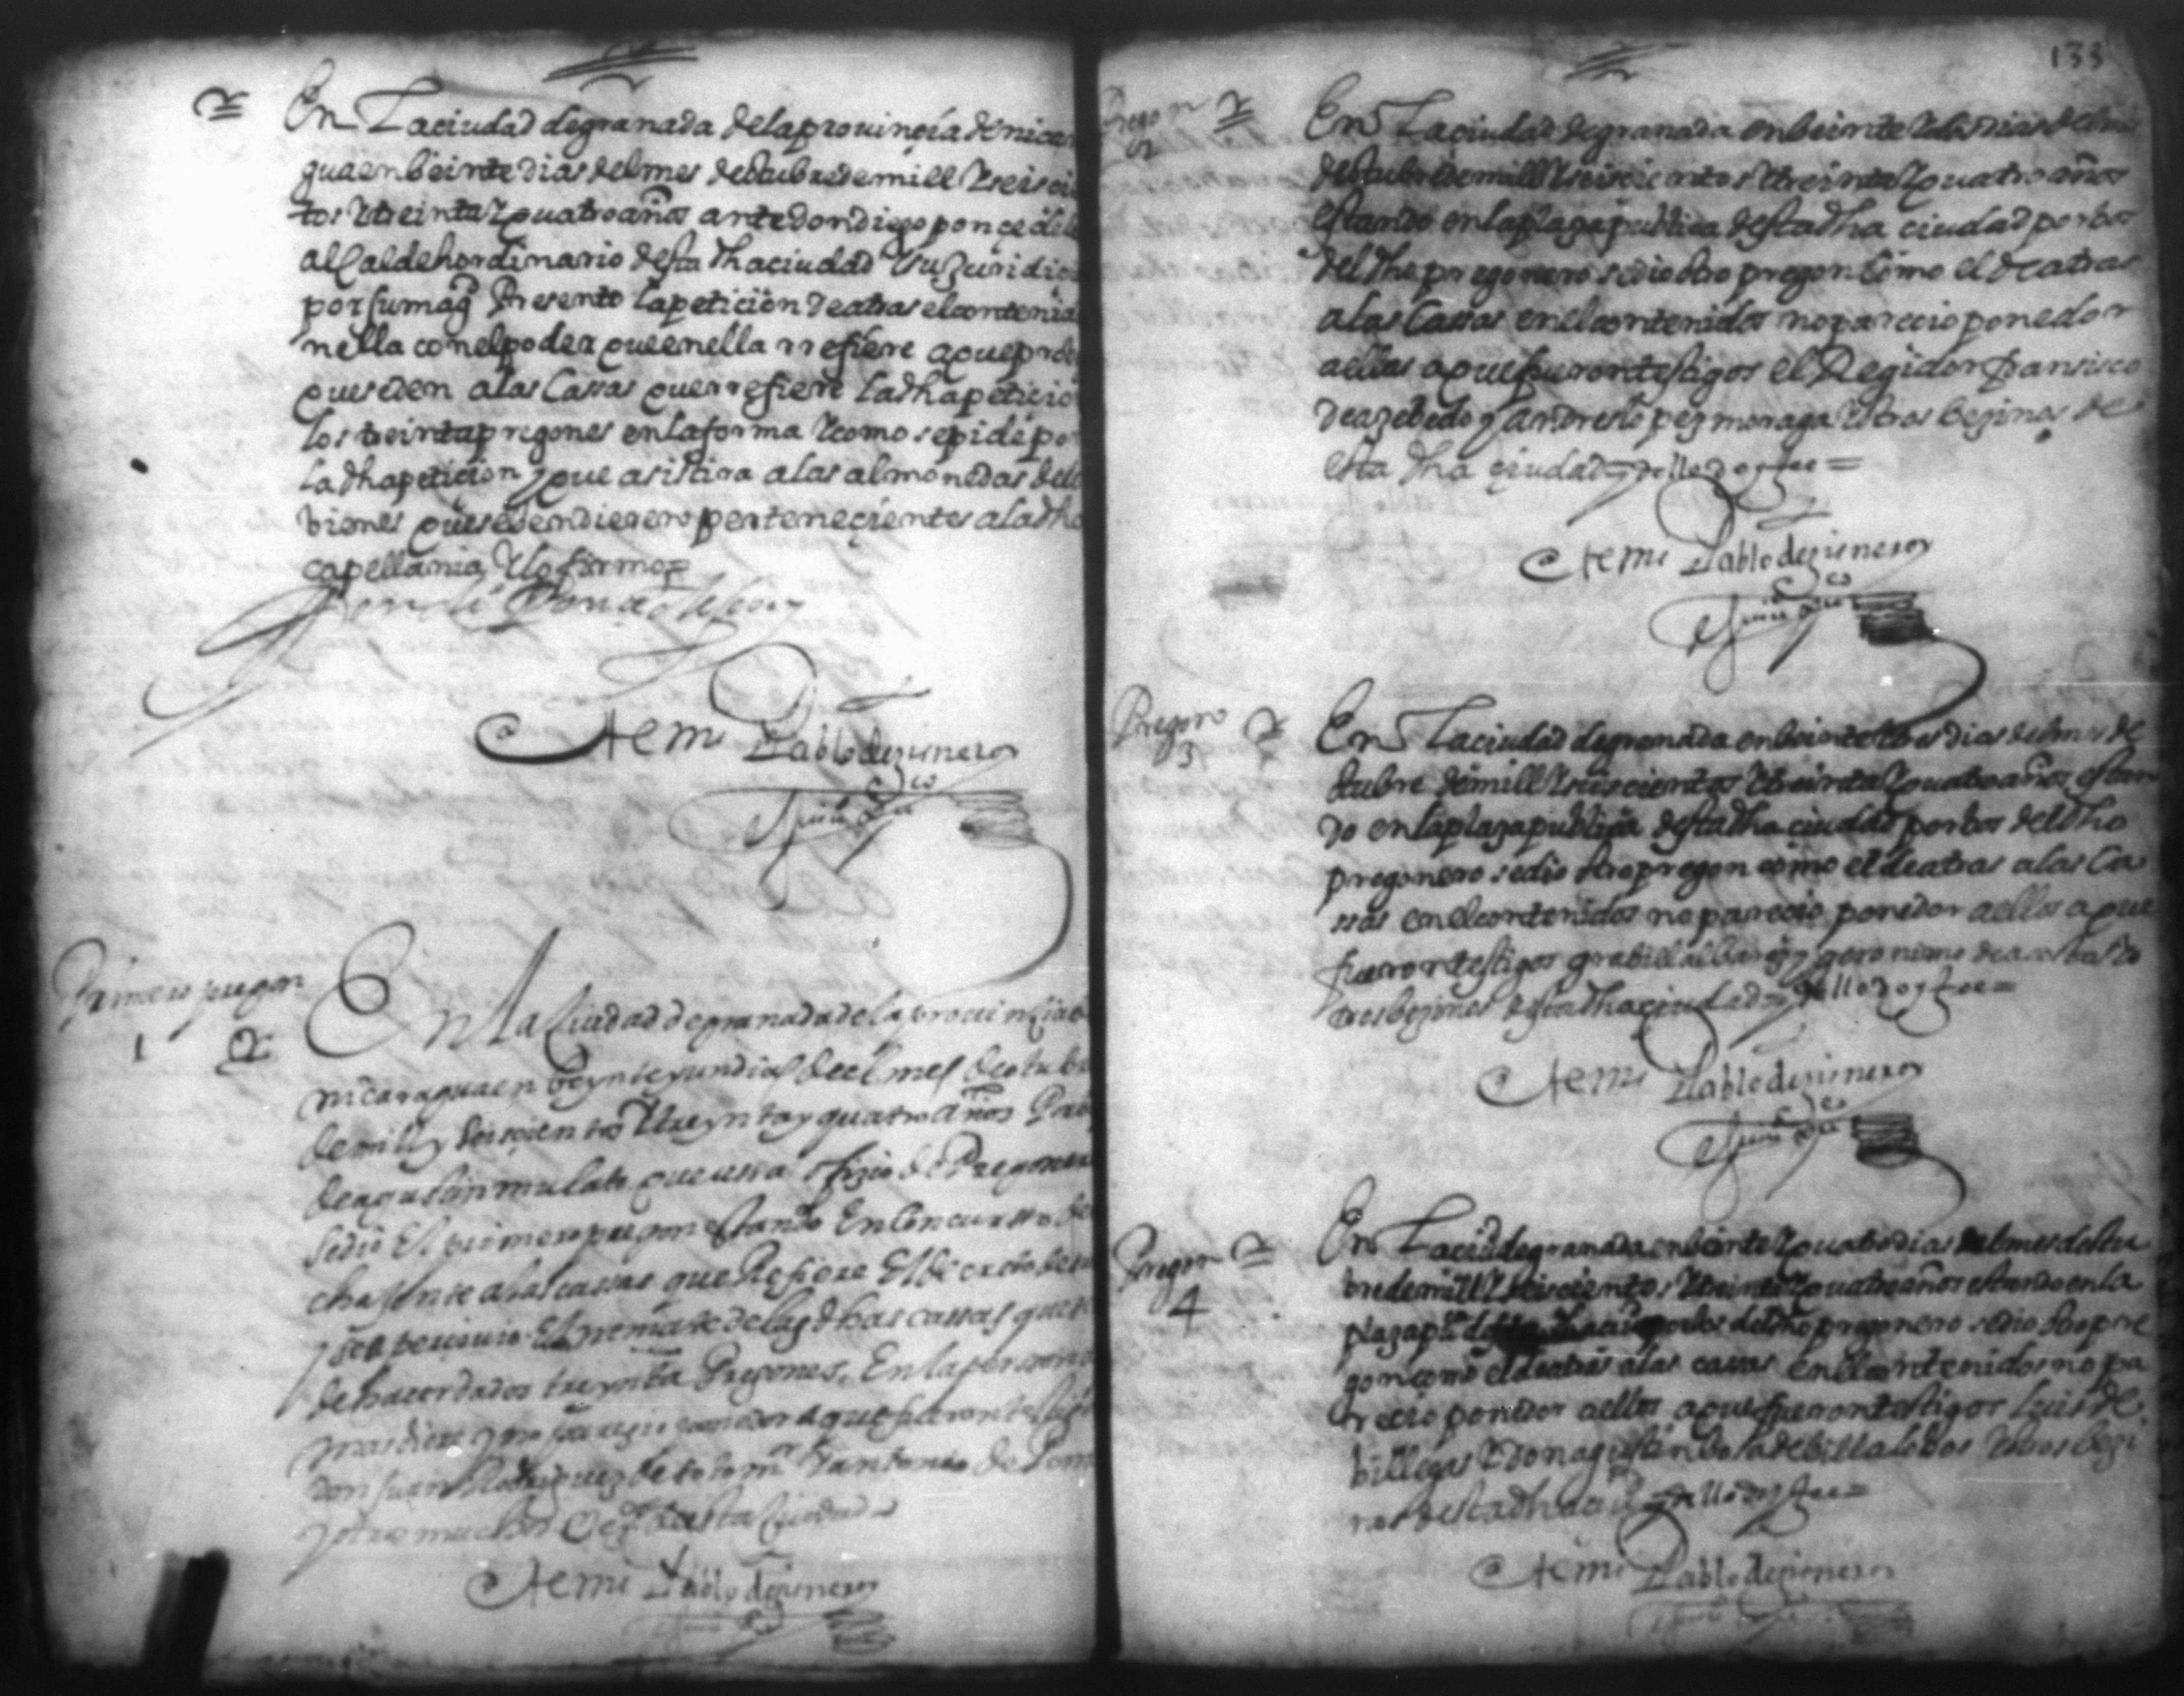 En La ciudad de granada de la prouinçia de nica
gua en beinte dias del mes de otubre de mill y seiscie
tos y treinta y quatro años ante don diego ponçe de le
alcalde hordinario desta dha ciudad y su juridic
por su magd Presento la peticion de atras el contenid
nella con el poder que en ella rrefiere a que probe
que se den a las Casas que rrefiere la dha peticio
los treinta pregones en la forma y como se pide po
la dha peticion y que asistira a las almonedas de lo
bienes que se bendieren pertenecientes a la dha
capellania y lo firmo
Ante mi Pablo de zisneros
Primero pregon
1
En la Ciudad de granada de la prouinçia de
nicaragua en beynte y un dias de el mes de otubre
de mill y seiscientos y treynta y quatro años Por
de agustin mulato que ussa offizio de Pregonero
se dio El primero pregon estando En concursso de
cha jente a las cassas que Refiere El
y se aperciuio El rremate de las dhas cassas que
de treynta Pregones, En la persona
mas diere y no parezio ponedor a que fueron testigos
don Juan Rodriguez de y antonio de
y otros muchos desta Ciudad
Ante mi Pablo de zisneros
133
Pregon
2
En La ciudad de granada en beinte y dos dias del m
de otubre de mill y seiscientos y treinta y quatro años
estando en la plaza publica desta dha ciudad por bos
del dho pregonero se dio otro pregon como el de atras
a las Casas en el contenidas no parecio ponedor
a ellas a que fueron testigos el Regidor fransisco
de azebedo y andres lopez moraga y otros bezinos de
esta dha ciudad y dello doy fee =
Ante mi Pablo de zisneros
Pregon
3
En La ciudad de granada en beinte y tres dias del mes de
otubre de mill y seiscientos y treinta y quatro años estan
do en la plaza publica desta dha ciudad por bos del dho
pregonero se dio otro pregon como el de atras a las Ca
sas en el contenidas no parecio ponedor a ellas a que
fueron testigos grabiel albarez y geronimo de
tros bezinos desta dha ciudad y dello doy fee =
Ante mi Pablo de zisneros
Pregon
4
En La ciud de granada en beinte y quatro dias del mes de otu
bre de mill y seiscientos y treinta y quatro años estando en la
plaza pca desta dha ciud por bos del dho pregonero se dio otro pre
gon como el de atras a las casas en el contenidas no pa
recio ponedor a ellas a que fueron testigos luis de
billegas y don agustin de billalobos y otros bezi
nos desta dha ciud y dello doy fee =
Ante mi Pablo de zisneros